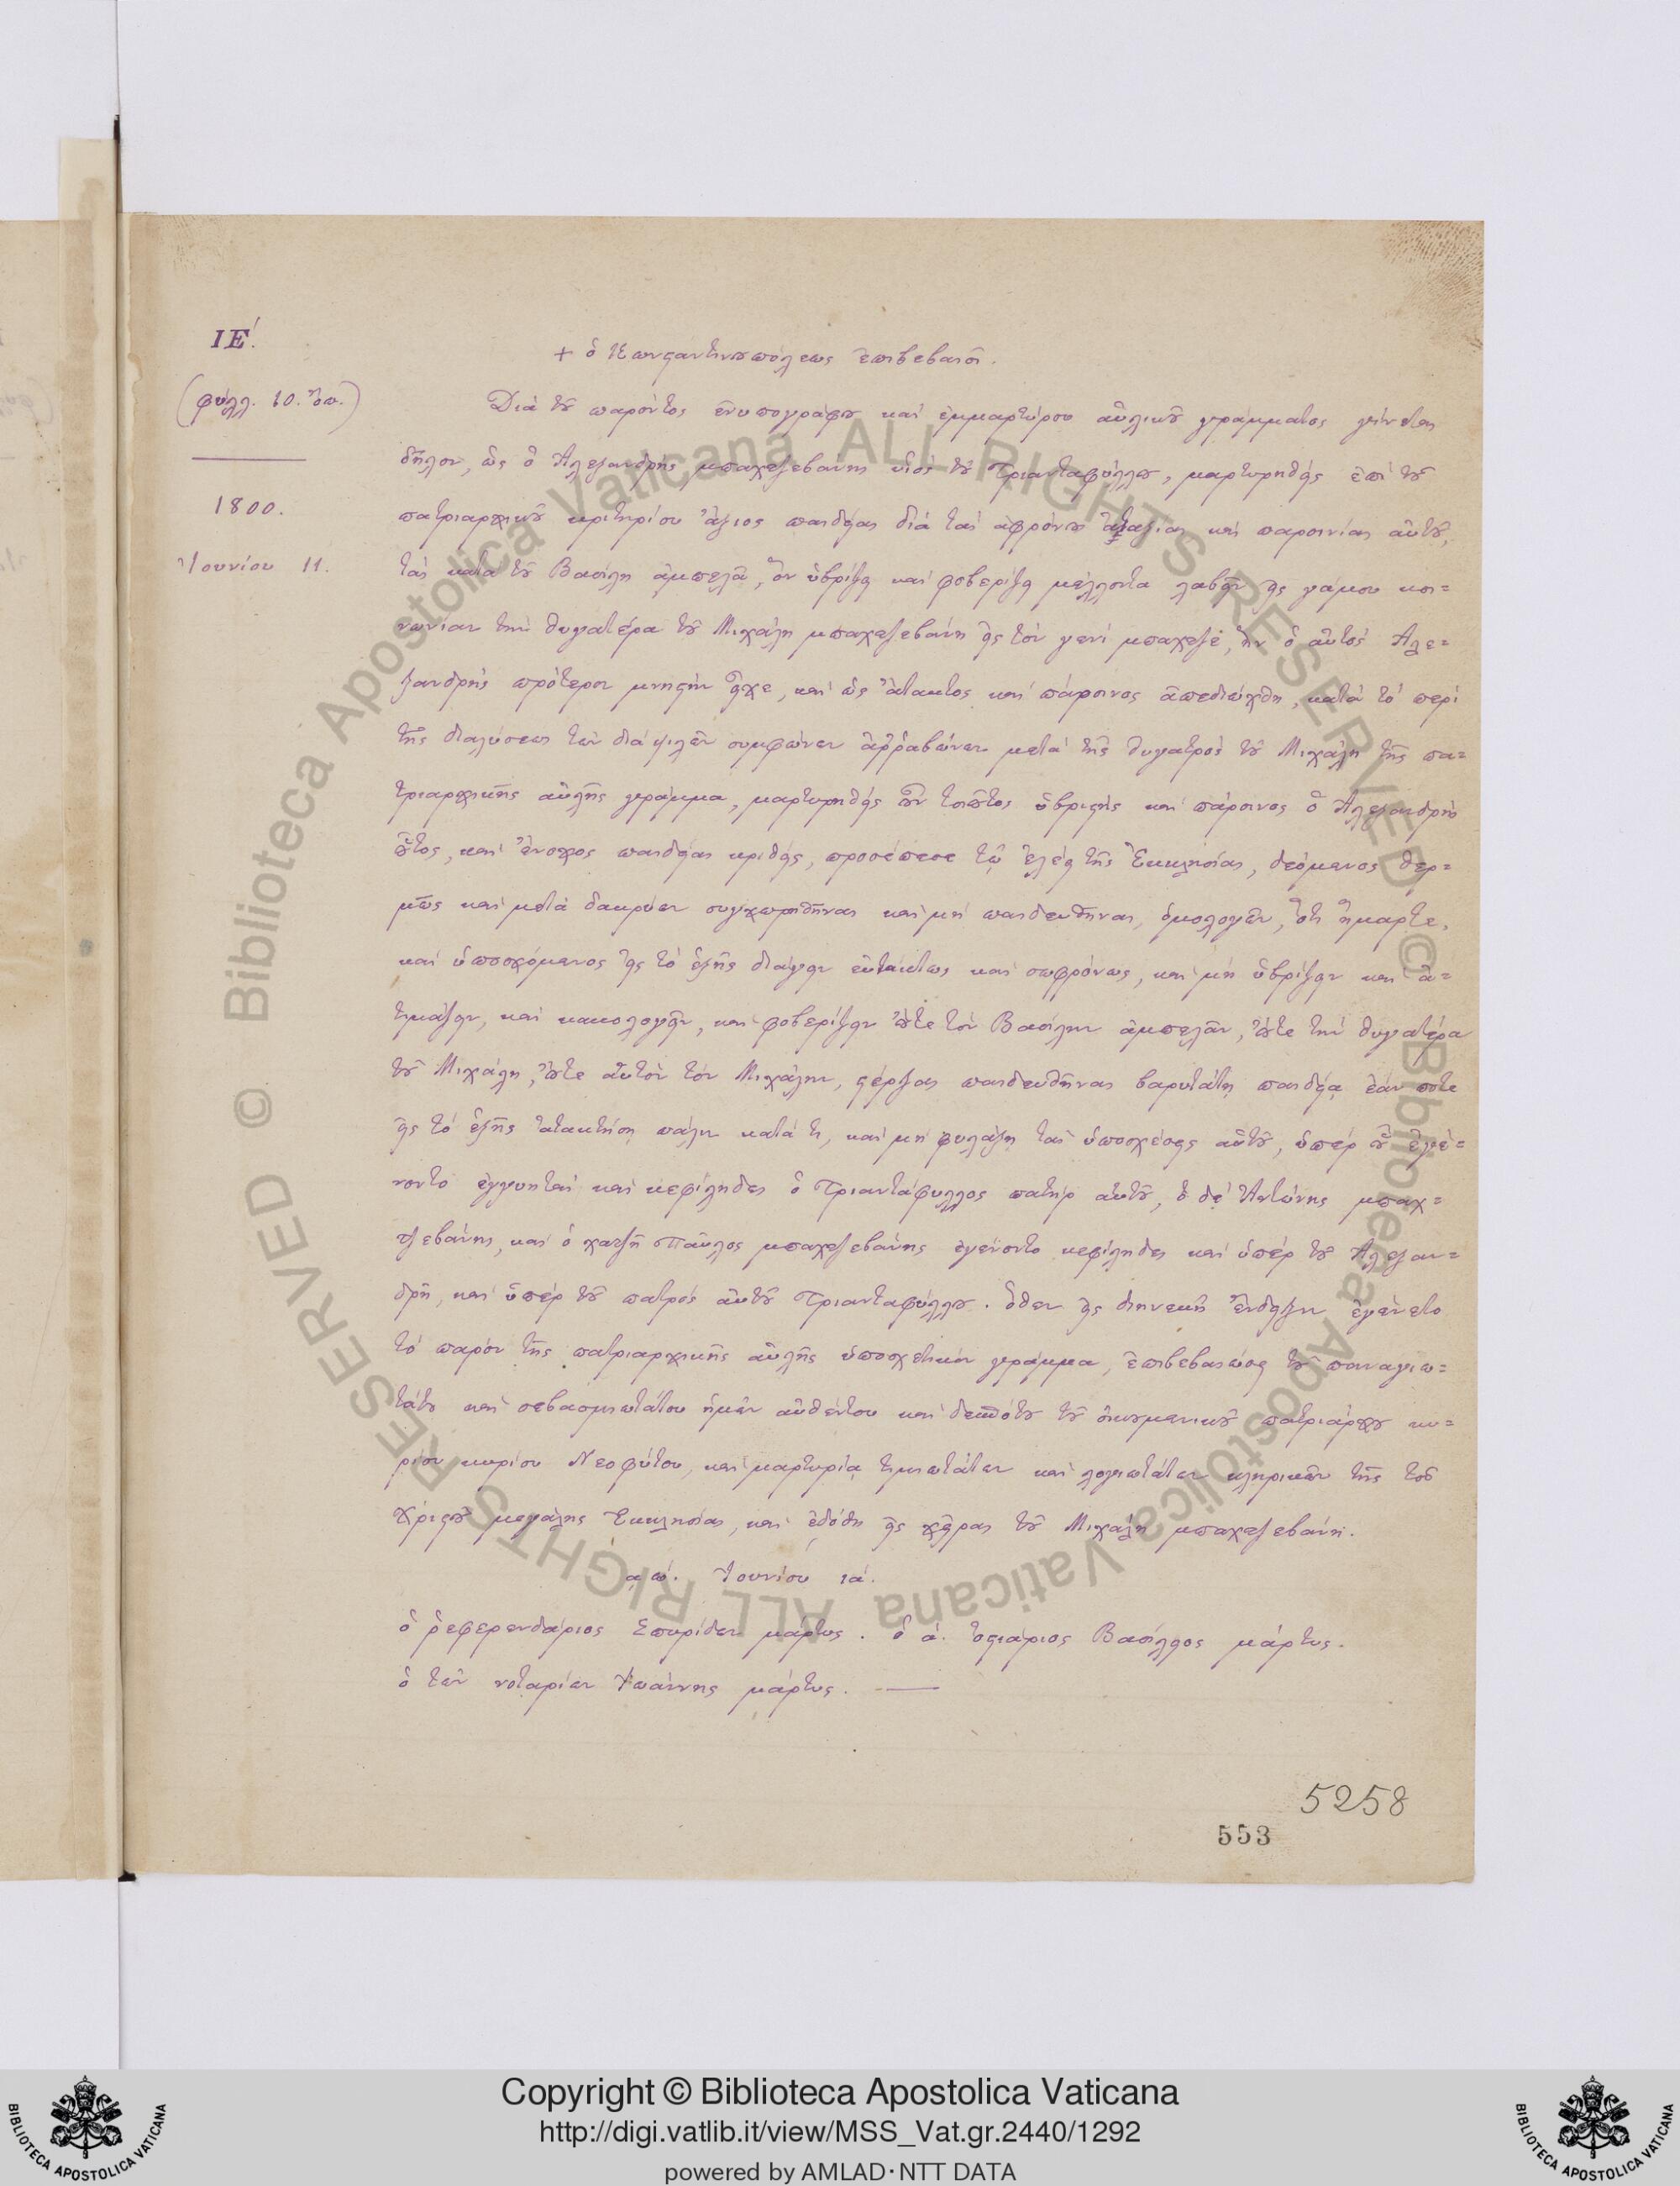 ΙΕ΄.
(φύλλ. 10. ὄπ.)
1800.
Ἰουνίου 11.
+ ὁ Κωνςαντινουπόλεως ἐπιβεβαιοῖ.
Διὰ τοῦ παρόντος ἐνυπογράφου καὶ ἐμμαρτύρου αὐλικοῦ γράμματος γίνεται
δῆλον, ὡς ὁ Ἀλεξανδρῆς μπαχτζεβάνης υἱὸς τοῦ Τριανταφύλλου, μαρτυρηθεὶς ἐπὶ τοῦ
πατριαρχικοῦ κριτηρίου ἄξιος παιδείας διὰ τὰς ἀφρόνου ἀταξίας καὶ παροινίας αὐτοῦ,
τὰς κατὰ τοῦ Βασίλη ἀμπελᾶ, ὃν ὑβρίζει καὶ φοβερίζει μέλλοντα λαβεῖν εἰς γάμου κοι=
νωνίαν τὴν θυγατέρα τοῦ Μιχάλη μπαχτζεβάνη εἰς τὸν γενὶ μπαχτζέ, ἣν ὁ αὐτὸς Ἀλε=
ξανδρῆς πρότερον μνηςὴν εἶχε, καὶ ὡς ἄτακτος καὶ πάροινος ἀπεδιώχθη, κατὰ τὸ περὶ
τῆς διαλύσεως τῶν διὰ ψιλῶν συμφώνων ἀῤῥαβώνων μετὰ τῆς θυγατρὸς τοῦ Μιχάλη τῆς πα=
τριαρχικῆς αὐλῆς γράμμα, μαρτυρηθεὶς οὖν τοιοῦτος ὑβριςὴς καὶ πάροινος ὁ Ἀλεξανδρῆς
οὗτος, καὶ ἔνοχος παιδείας κριθείς, προσέπεσε τῷ ἐλέει τῆς Ἐκκλησίας, δεόμενος θερ=
μῶς καὶ μετὰ δακρύων συγχωρηθῆναι καὶ μὴ παιδευθῆναι, ὁμολογῶν, ὅτι ἥμαρτε,
καὶ ὑποσχόμενος εἰς τὸ ἑξῆς διάγειν εὐτάκτως καὶ σωφρόνως, καὶ μὴ ὑβρίζειν καὶ ἀ=
τιμάζειν, καὶ κακολογεῖν, καὶ φοβερίζειν οὔτε τὸν Βασίλην ἀμπελᾶν, οὔτε τὴν θυγατέρα
τοῦ Μιχάλη, οὔτε αὐτὸν τὸν Μιχάλην, ςέρξας παιδευθῆναι βαρυτάτῃ παιδείᾳ ἐάν ποτε
εἰς τὸ ἑξῆς ἀτακτήσῃ πάλιν κατά τι, καὶ μὴ φυλάξῃ τὰς ὑποσχέσεις αὐτοῦ, ὑπὲρ οὗ ἐγέ=
νοντο ἐγγυηταὶ καὶ κεφίλιδες ὁ Τριαντάφυλλος πατὴρ αὐτοῦ, ὁ δὲ Ἀντώνης μπαχ=
τζεβάνης, καὶ ὁ χατζῆ Παῦλος μπαχτζεβάνης ἐγένοντο κεφίληδες καὶ ὑπὲρ τοῦ Ἀλεξαν=
δρῆ, καὶ ὑπὲρ τοῦ πατρὸς αὐτοῦ Τριανταφύλλου. ὅθεν εἰς διηνεκῆ ἔνδειξιν ἐγένετο
τὸ παρὸν τῆς πατριαρχικῆς αὐλῆς ὑποσχετικὸν γράμμα, ἐπιβεβαιώσει τοῦ παναγιω=
τάτου καὶ σεβασμιωτάτου ἡμῶν αὐθέντου καὶ δεσπότου τοῦ οἰκουμενικοῦ πατριάρχου κυ=
ρίου κυρίου Νεοφύτου, καὶ μαρτυρίᾳ τιμιωτάτων καὶ λογιωτάτων κληρικῶν τῆς τοῦ
Χριςοῦ μεγάλης Ἐκκλησίας, καὶ ἐδόθη εἰς χεῖρας τοῦ Μιχάλη μπαχτζεβάνη.
͵αω΄. Ἰουνίου ια΄.
ὁ ῥεφερενδάριος Σπυρίδων μάρτυς. ὁ α΄. ὀςιάριος Βασίλειος μάρτυς.
ὁ τῶν νοταρίων Ἰωάννης μάρτυς.
5258
553
© Biblioteca Apostolica Vaticana ALL RIGHTS RESERVED
© Biblioteca Apostolica Vaticana ALL RIGHTS RESERVED
Copyright © Biblioteca Apostolica Vaticana
http://digi.vatlib.it/view/MSS_Vat.gr.2440/1292
powered by AMLAD·NTT DATA
BIBLIOTECA APOSTOLICA VATICANA
BIBLIOTECA APOSTOLICA VATICANA